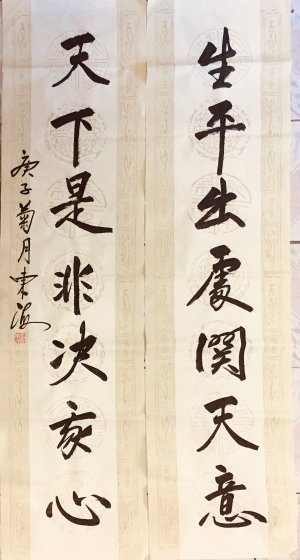 生平出處関天意
天下是非决我心
庚子菊月東海